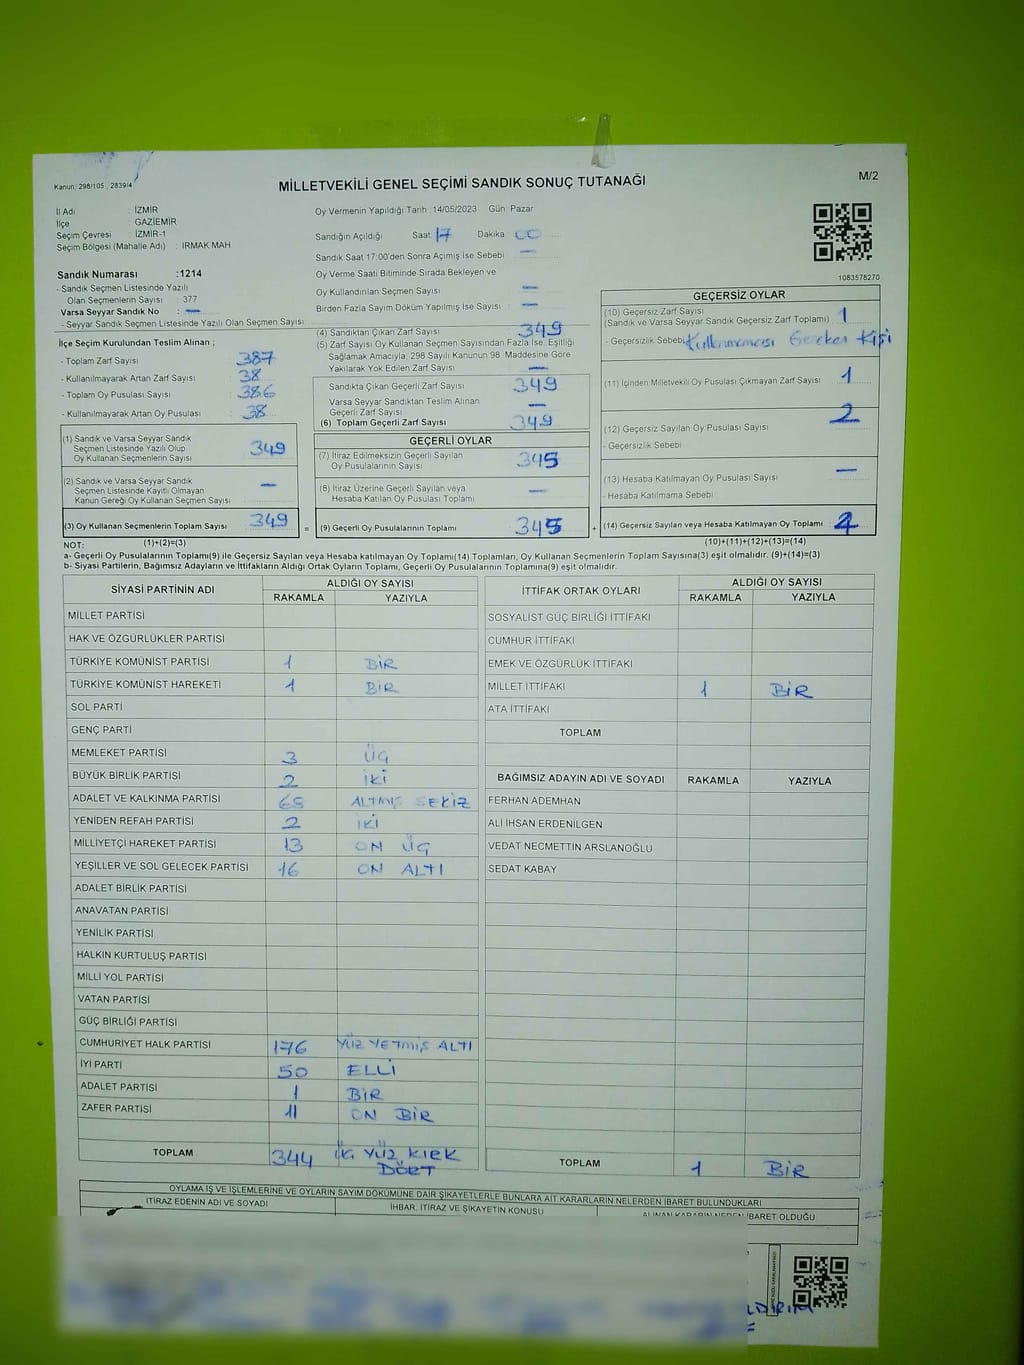 Kanun: 298/105 , 2839/4
MİLLETVEKİLİ GENEL SEÇİMİ SANDIK SONUÇ TUTANAĞI
M/2
İl Adı : İZMİR
İlçe : GAZİEMİR
Seçim Çevresi : İZMİR-1
Seçim Bölgesi (Mahalle Adı) : IRMAK MAH
Sandık Numarası :1214
- Sandık Seçmen Listesinde Yazılı
Olan Seçmenlerin Sayısı : 377
Varsa Seyyar Sandık No : —
- Seyyar Sandık Seçmen Listesinde Yazılı Olan Seçmen Sayısı :
İlçe Seçim Kurulundan Teslim Alınan ;
- Toplam Zarf Sayısı : 387
- Kullanılmayarak Artan Zarf Sayısı : 38
- Toplam Oy Pusulası Sayısı : 386
- Kullanılmayarak Artan Oy Pusulası : 38
(1) Sandık ve Varsa Seyyar Sandık
Seçmen Listesinde Yazılı Olup
Oy Kullanan Seçmenlerin Sayısı : 349
(2) Sandık ve Varsa Seyyar Sandık
Seçmen Listesinde Kayıtlı Olmayan
Kanun Gereği Oy Kullanan Seçmen Sayısı : —
(3) Oy Kullanan Seçmenlerin Toplam Sayısı : 349
Oy Vermenin Yapıldığı Tarih :14/05/2023 Gün: Pazar
Sandığın Açıldığı Saat: 17 Dakika 00
Sandık Saat 17:00'den Sonra Açımış İse Sebebi : —
Oy Verme Saati Bitiminde Sırada Bekleyen ve
Oy Kullandırılan Seçmen Sayısı : —
Birden Fazla Sayım Döküm Yapılmış İse Sayısı : —
(4) Sandıktan Çıkan Zarf Sayısı : 349
(5) Zarf Sayısı Oy Kullanan Seçmen Sayısından Fazla İse, Eşitliği
Sağlamak Amacıyla, 298 Sayılı Kanunun 98. Maddesine Göre
Yakılarak Yok Edilen Zarf Sayısı : —
Sandıkta Çıkan Geçerli Zarf Sayısı : 349
Varsa Seyyar Sandıktan Teslim Alınan
Geçerli Zarf Sayısı : —
(6) Toplam Geçerli Zarf Sayısı : 349
GEÇERLİ OYLAR
(7) İtiraz Edilmeksizin Geçerli Sayılan
Oy Pusulalarının Sayısı : 345
(8) İtiraz Üzerine Geçerli Sayılan veya
Hesaba Katılan Oy Pusulası Toplamı : —
= (9) Geçerli Oy Pusulalarının Toplamı : 345
1083578270
GEÇERSİZ OYLAR
(10) Geçersiz Zarf Sayısı
(Sandık ve Varsa Seyyar Sandık Geçersiz Zarf Toplamı) : 1
- Geçersizlik Sebebi : Kullanmaması Gereken Kişi
(11) İçinden Milletvekili Oy Pusulası Çıkmayan Zarf Sayısı : 1
(12) Geçersiz Sayılan Oy Pusulası Sayısı : 2
- Geçersizlik Sebebi :
(13) Hesaba Katılmayan Oy Pusulası Sayısı : —
- Hesaba Katılmama Sebebi :
+ (14) Geçersiz Sayılan veya Hesaba Katılmayan Oy Toplamı : 4
NOT: (1)+(2)=(3) (10)+(11)+(12)+(13)=(14)
a- Geçerli Oy Pusulalarının Toplamı(9) ile Geçersiz Sayılan veya Hesaba katılmayan Oy Toplamı(14) Toplamları, Oy Kullanan Seçmenlerin Toplam Sayısına(3) eşit olmalıdır. (9)+(14)=(3)
b- Siyasi Partilerin, Bağımsız Adayların ve İttifakların Aldığı Ortak Oyların Toplamı, Geçerli Oy Pusulalarının Toplamına(9) eşit olmalıdır.
SİYASİ PARTİNİN ADI ALDIĞI OY SAYISI
RAKAMLA YAZIYLA
MİLLET PARTİSİ
HAK VE ÖZGÜRLÜKLER PARTİSİ
TÜRKİYE KOMÜNİST PARTİSİ 1 BİR
TÜRKİYE KOMÜNİST HAREKETİ 1 BİR
SOL PARTİ
GENÇ PARTİ
MEMLEKET PARTİSİ 3 ÜÇ
BÜYÜK BİRLİK PARTİSİ 2 İKİ
ADALET VE KALKINMA PARTİSİ 68 ALTMIŞ SEKİZ
YENİDEN REFAH PARTİSİ 2 İKİ
MİLLİYETÇİ HAREKET PARTİSİ 13 ON ÜÇ
YEŞİLLER VE SOL GELECEK PARTİSİ 16 ON ALTI
ADALET BİRLİK PARTİSİ
ANAVATAN PARTİSİ
YENİLİK PARTİSİ
HALKIN KURTULUŞ PARTİSİ
MİLLİ YOL PARTİSİ
VATAN PARTİSİ
GÜÇ BİRLİĞİ PARTİSİ
CUMHURİYET HALK PARTİSİ 176 YÜZ YETMİŞ ALTI
İYİ PARTİ 50 ELLİ
ADALET PARTİSİ 1 BİR
ZAFER PARTİSİ 11 ON BİR
TOPLAM 344 ÜÇ YÜZ KIRK
DÖRT
İTTİFAK ORTAK OYLARI ALDIĞI OY SAYISI
RAKAMLA YAZIYLA
SOSYALİST GÜÇ BİRLİĞİ İTTİFAKI
CUMHUR İTTİFAKI
EMEK VE ÖZGÜRLÜK İTTİFAKI
MİLLET İTTİFAKI 1 BİR
ATA İTTİFAKI
TOPLAM
BAĞIMSIZ ADAYIN ADI VE SOYADI RAKAMLA YAZIYLA
FERHAN ADEMHAN
ALİ İHSAN ERDENİLGEN
VEDAT NECMETTİN ARSLANOĞLU
SEDAT KABAY
TOPLAM 1 BİR
OYLAMA İŞ VE İŞLEMLERİNE VE OYLARIN SAYIM DÖKÜMÜNE DAİR ŞİKAYETLERLE BUNLARA AİT KARARLARIN NELERDEN İBARET BULUNDUKLARI
İTİRAZ EDENİN ADI VE SOYADI İHBAR, İTİRAZ VE ŞİKAYETİN KONUSU ALINAN KARARIN NEDEN İBARET OLDUĞU